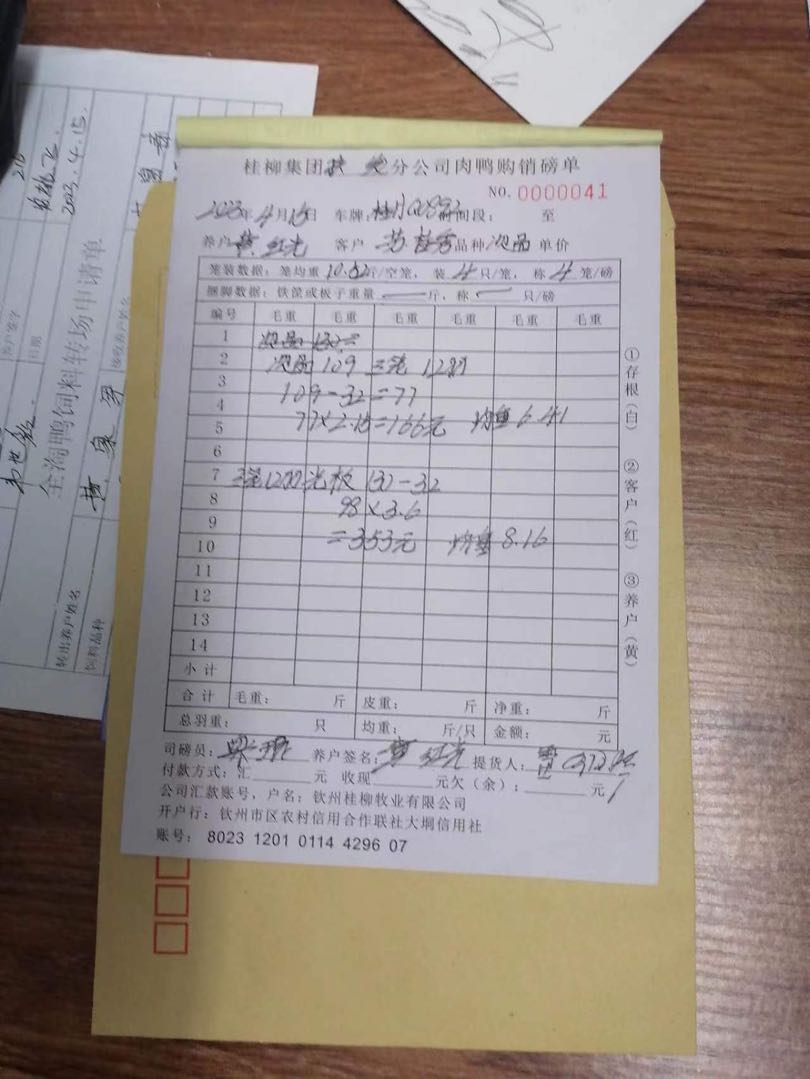 桂柳集团 分公司肉鸭购销磅单
NO. 0000041
2023年4月15日 车牌: 时间段: 至
养户 黄红光 客户 苏 品种 次品 单价
笼装数据: 笼均重 斤/空笼, 装 4 只/笼, 称 4 笼/磅
捆脚数据: 铁筐或板子重量 — 斤, 称 — 只/磅
编号 毛重 毛重 毛重 毛重 毛重 毛重
1
2 次品 109 三笼 12只
3 109-32=77
4
5 77×2.15=166元 均重 6.41
6
7 三笼12只 光板 130-32
8 98×3.6
9
10 =353元 均重 8.16
11
12
13
14
小计
合计 毛重: 斤 皮重: 斤 净重: 斤
总羽重: 只 均重: 斤/只 金额: 元
司磅员: 养户签名: 黄红光 提货人:
付款方式: 汇 元 收现 元欠(余): 元
公司汇款账号, 户名: 钦州桂柳牧业有限公司
开户行: 钦州市区农村信用合作联社大垌信用社
账号: 8023 1201 0114 4296 07
①存根(白)
②客户(红)
③养户(黄)
全淘鸭饲料转场申请单
转出养户姓名
饲料品种
养户签字
日期
2023.4.15.
210